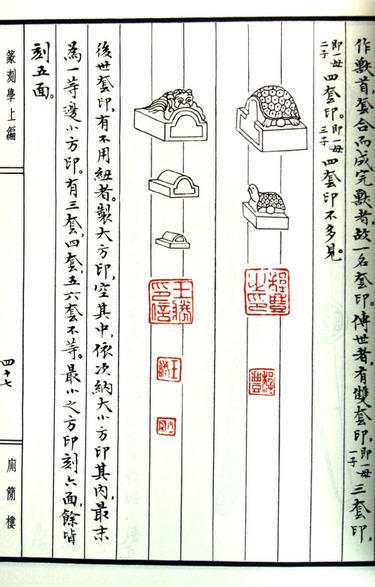 作獸首,套合而成完獸者,故一名套印。傳世者,有雙套印,即一母一子三套印,
即一母二子四套印。即一母三子四套印不多見。
程豐之印
程豐
王勝印信
王勝
後世套印,有不用紐者。製大方印,空其中,依次納大小方印其內,最末
為一等邊小方印。有三套,四套,五六套不等。最小之方印刻六面,餘皆
刻五面。
篆刻學上編
四十七
廁簡樓